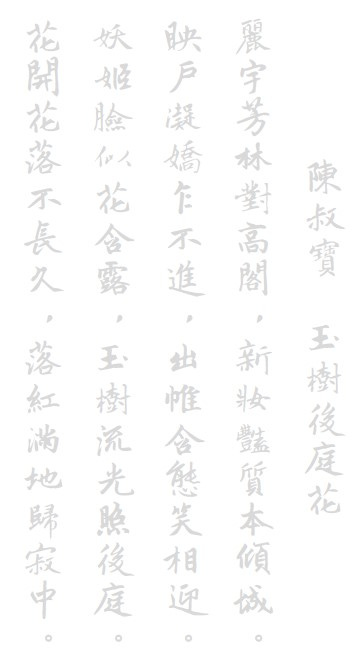 陳叔寶 玉樹後庭花
麗宇芳林對高閣，新妝豔質本傾城。
映戶凝嬌乍不進，出帷含態笑相迎。
妖姬臉似花含露，玉樹流光照後庭。
花開花落不長久，落紅滿地歸寂中。